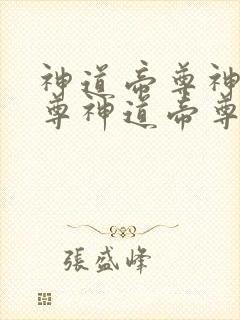 神道帝尊神
尊神道帝尊
張盛峰